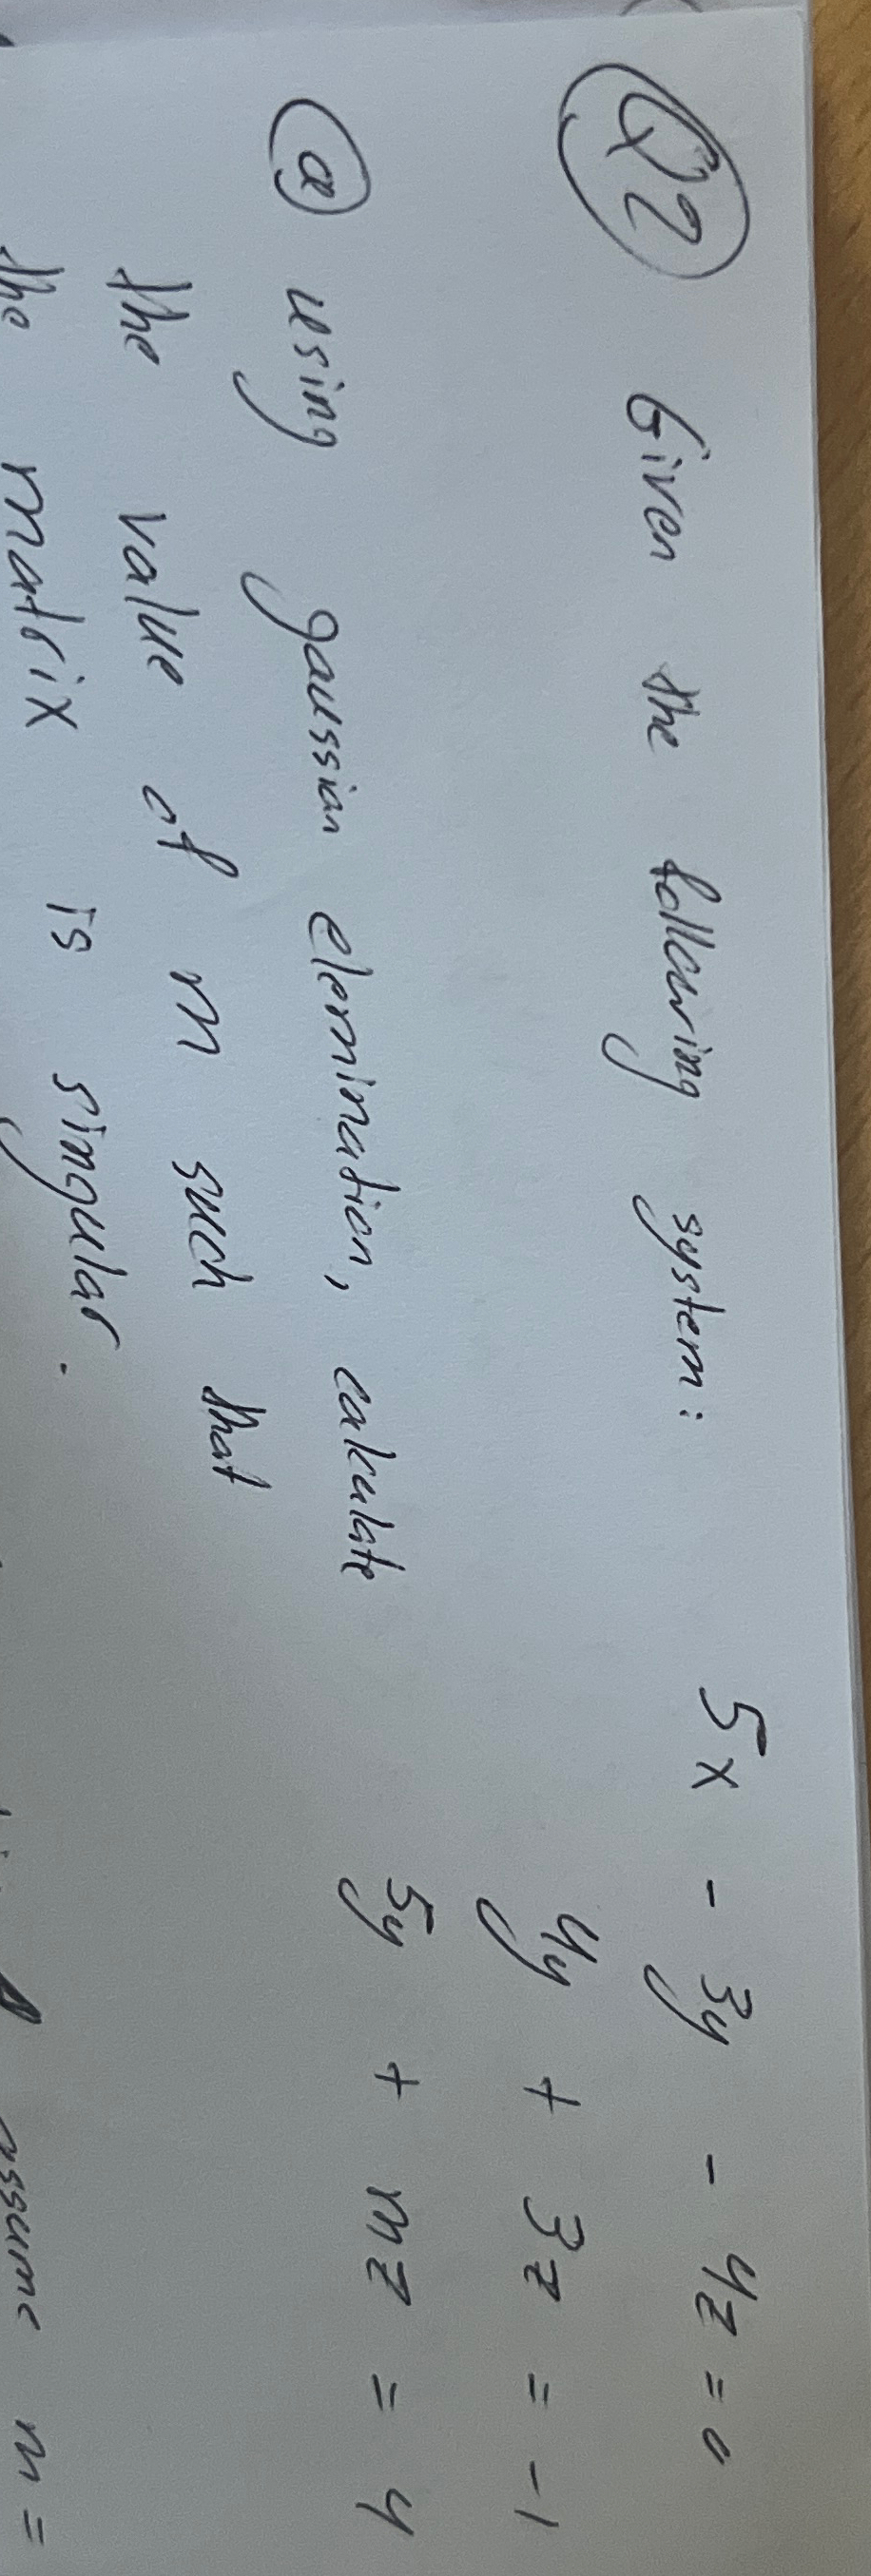 Q2 Given the following system: 5x - 3y - 4z = 0
4y + 3z = -1
@ using gaussian elemination, calculate 5y + mz = 4
the value of m such that
the matrix is singular.
assume m =